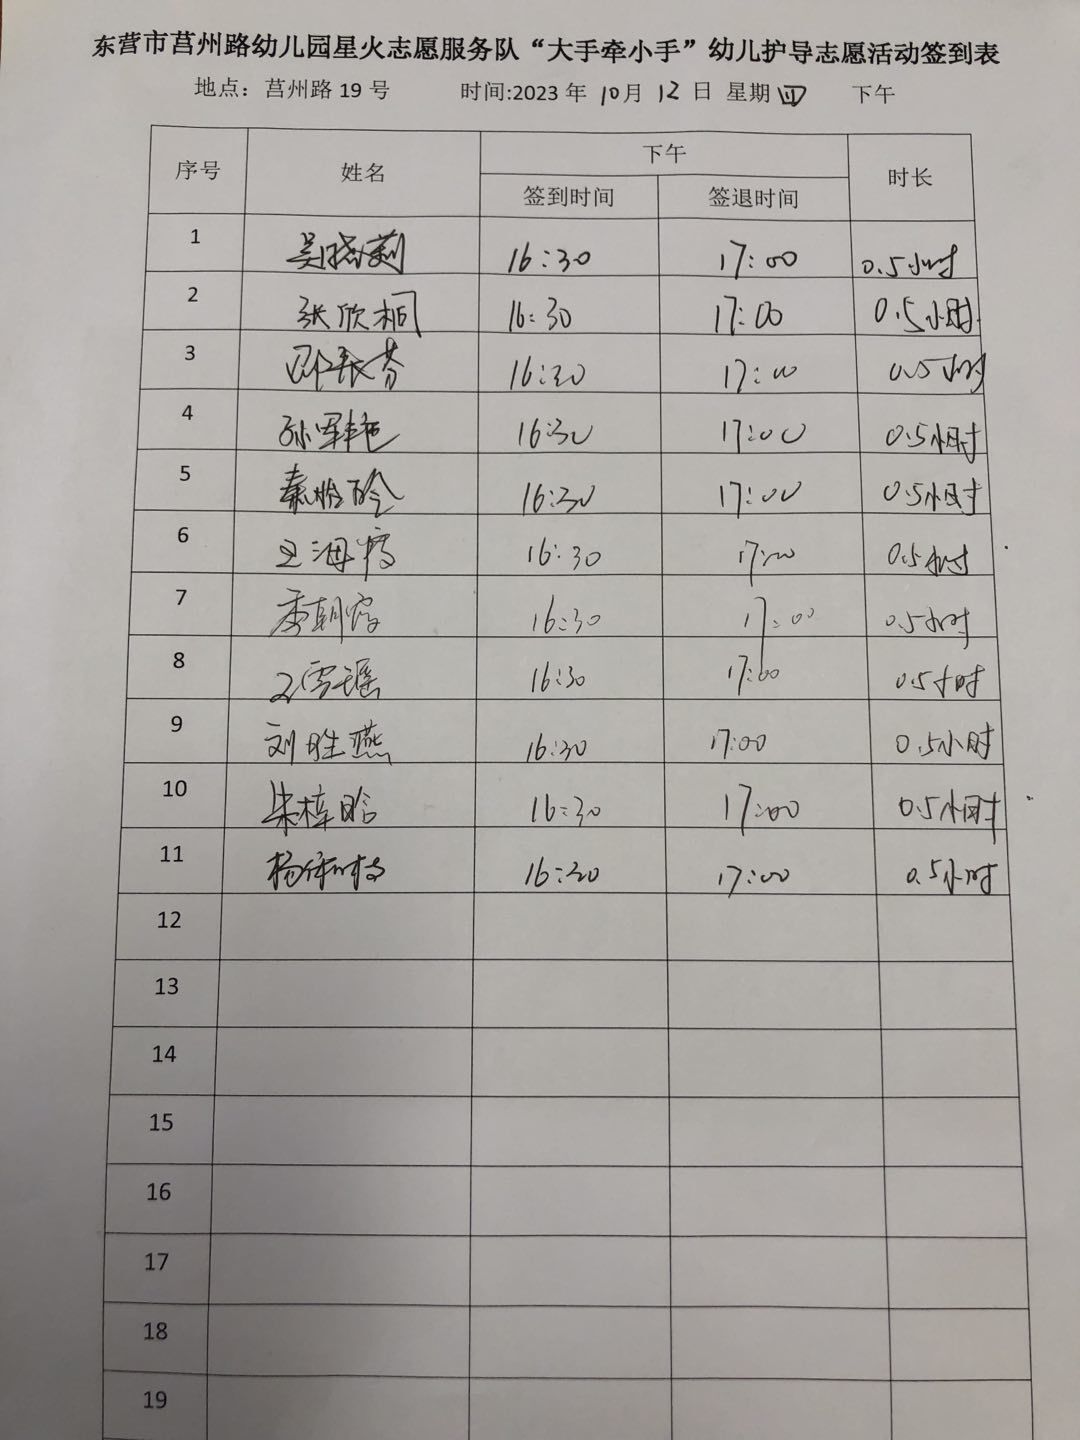 东营市莒州路幼儿园星火志愿服务队“大手牵小手”幼儿护导志愿活动签到表
地点：莒州路 19 号 时间:2023 年 10 月 12 日 星期 四 下午
序号 姓名 下午 时长
签到时间 签退时间
1 吴晓莉 16:30 17:00 0.5小时
2 张欣桐 16:30 17:00 0.5小时
3 16:30 17:00 0.5小时
4 孙军艳 16:30 17:00 0.5小时
5 秦怡 16:30 17:00 0.5小时
6 王海 16:30 17:00 0.5小时
7 季朝霞 16:30 17:00 0.5小时
8 雪瑶 16:30 17:00 0.5小时
9 刘胜燕 16:30 17:00 0.5小时
10 朱梓晗 16:30 17:00 0.5小时
11 杨 16:30 17:00 0.5小时
12
13
14
15
16
17
18
19